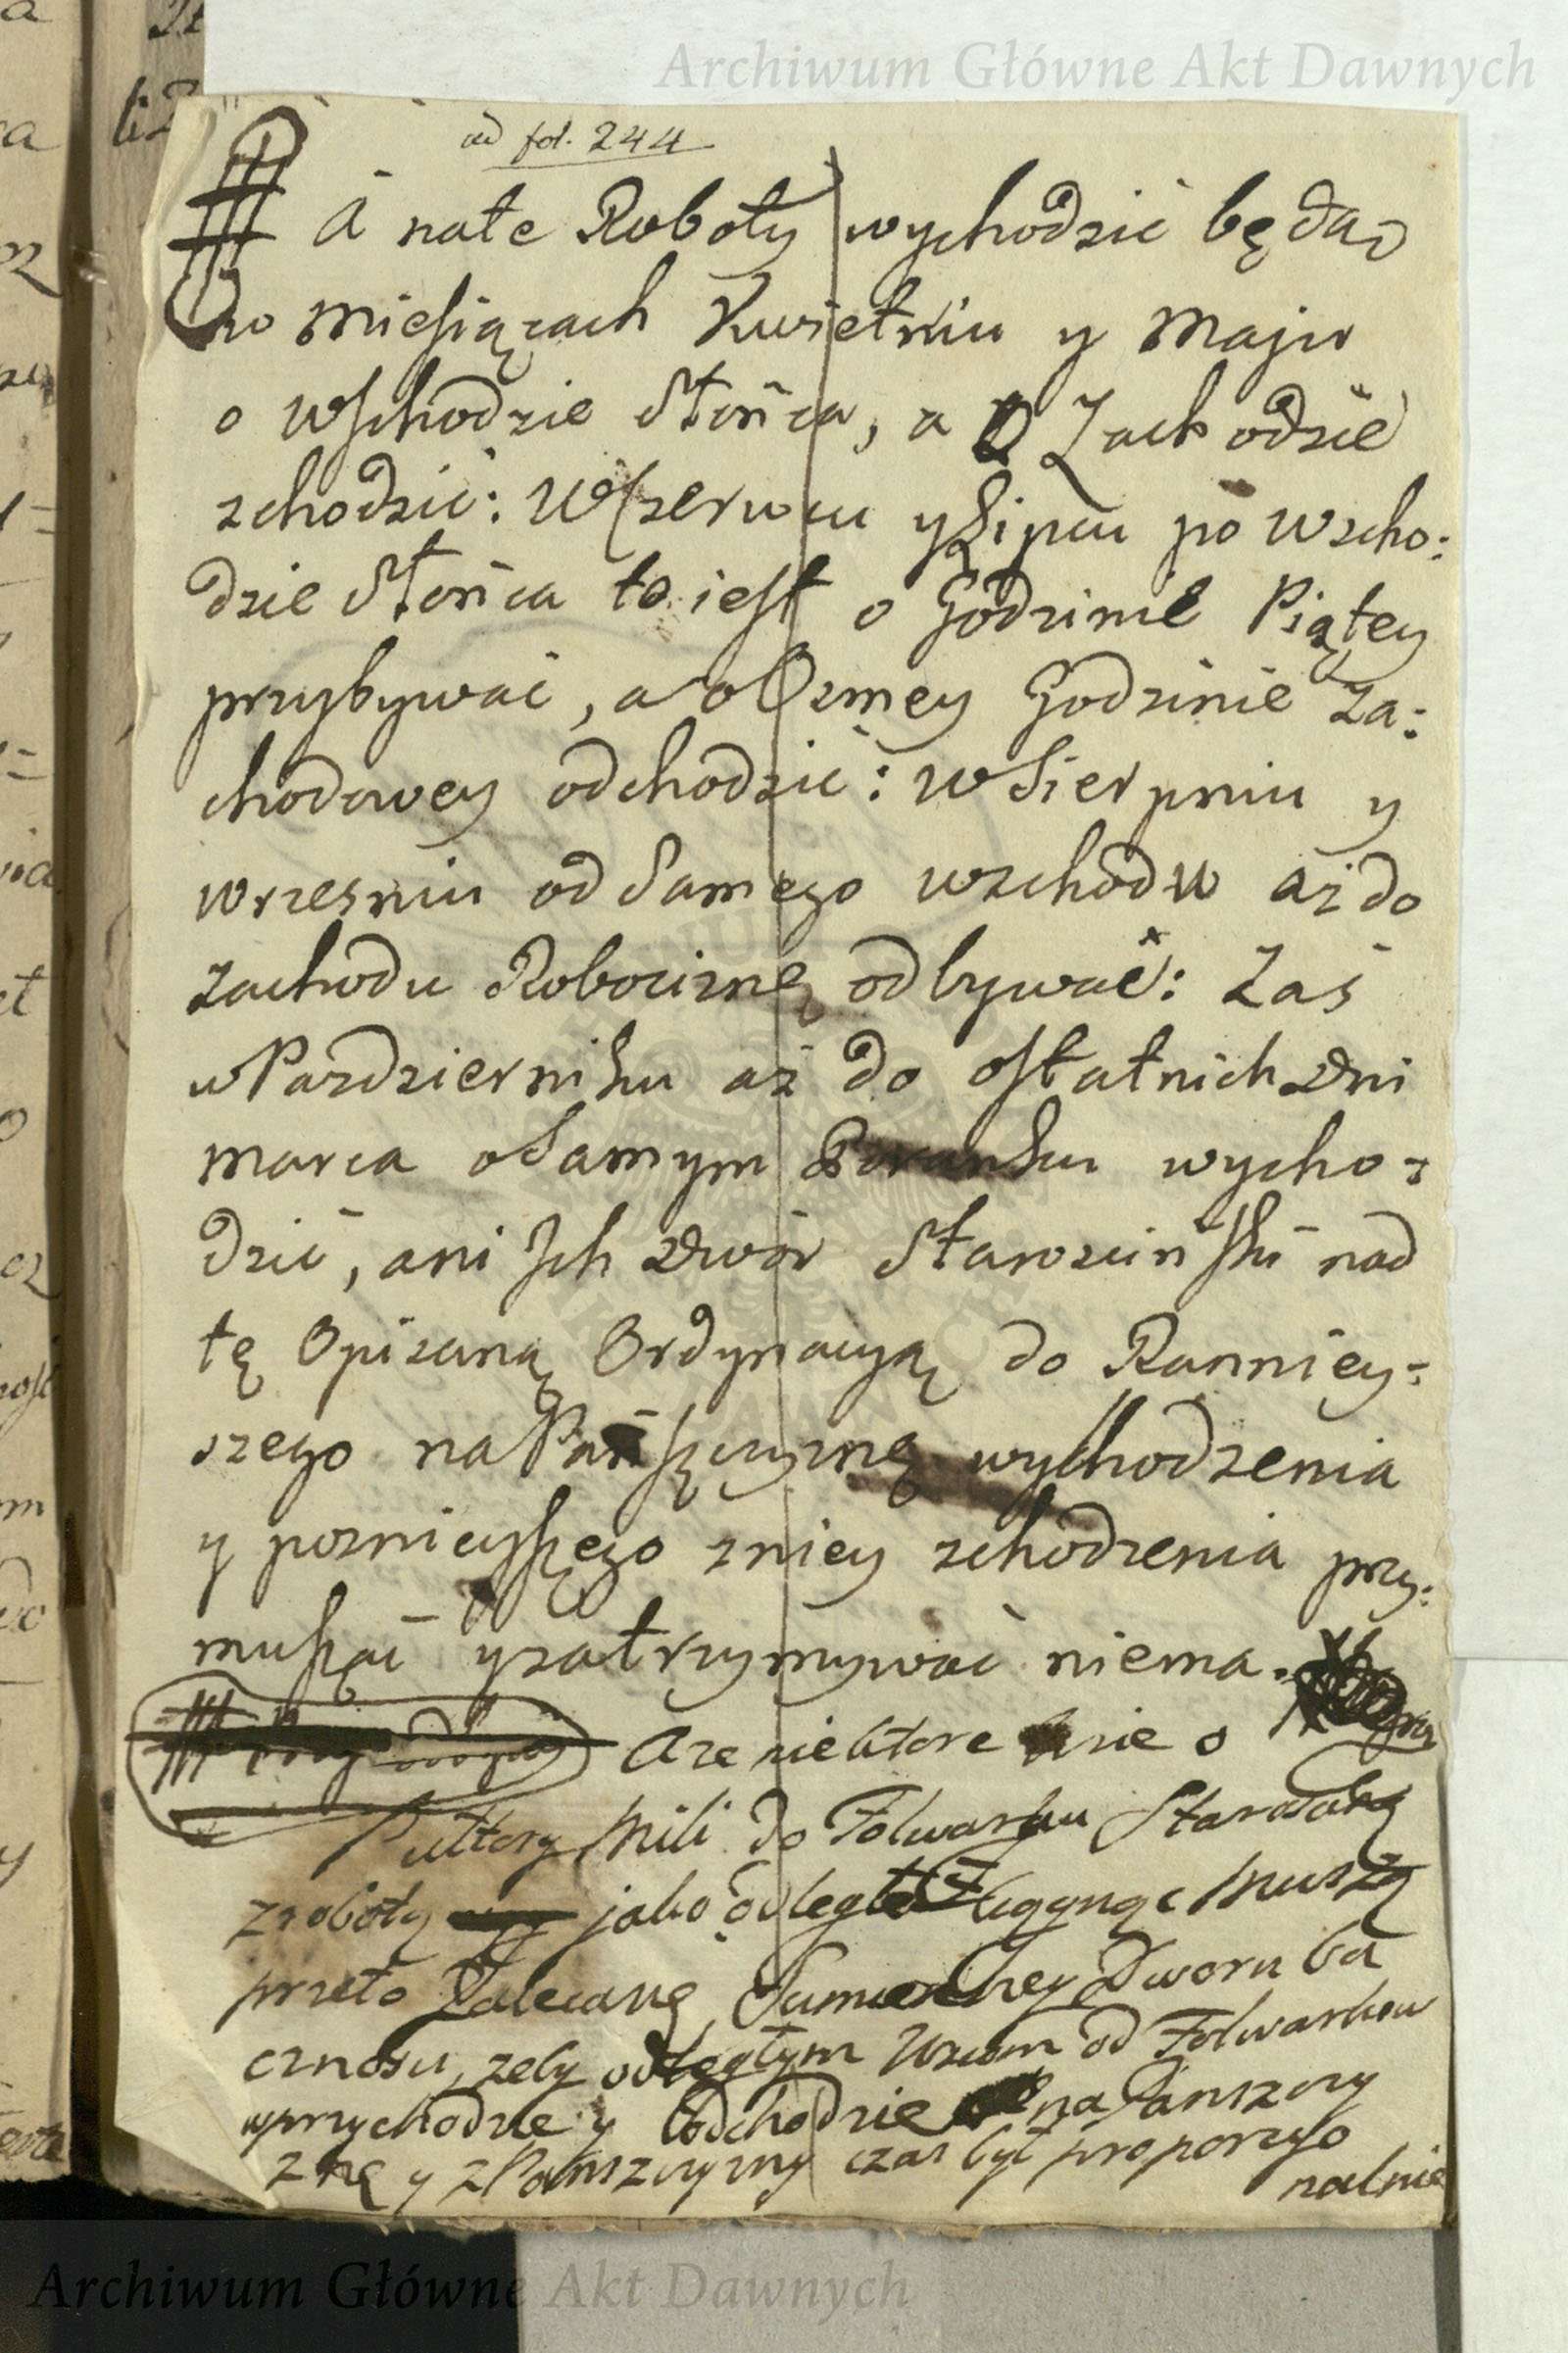 Archiwum Główne Akt Dawnych
ad fol. 244
A nate Roboty wychodzić będą
w Miesiącach Kwietniu y Maju
o Wschodzie Słońca, a o Zachodzie
zchodzić: W Czerwcu y Lipcu po Wscho:
dzie Słońca to iest o Godzinie Piątey
przybywać, a o Osmey Godzinie Za:
chodowey odchodzić: w Sierpniu y
wrzesniu od Samego wschodu aż do
zachodu Robociznę odbywać: Zaś
w Pazdzierniku aż do ostatnich dni
marca o Samym Poranku wycho:
dzić, ani Jch Dwór Starościński nad
tę Opisaną Ordynacyą do Ranniey:
szego na Pańszczyznę wychodzenia
y poznieyszego zniey zchodzenia przy:
muszać y zatrzymywać niema.
A ze niektore wsie o
Pułtory Mili do Folwarku Starostwa
z roboty jako odległe ciągnąć Muszą
przeto Zalecane Dworu ba
cznosci, zeby odległym Wsiom od Folwarkow
w przychodzie y odchodzie na Panszczy
znę y z Panszczyzny czas był proporcyo
nalnie
Archiwum Główne Akt Dawnych